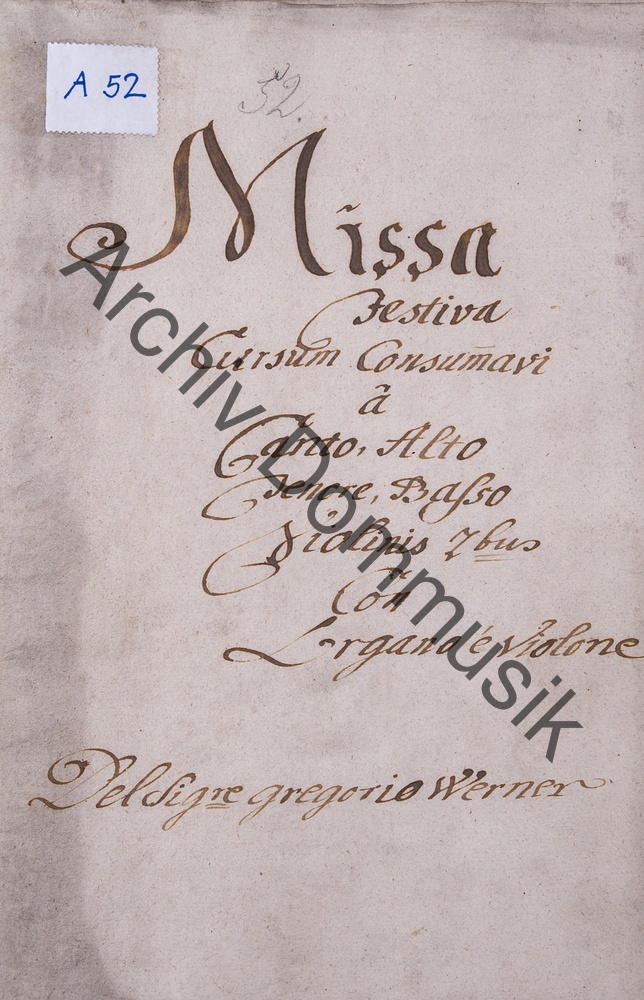 A 52
52.
Missa
Festiva
Cursum Consum̄avi
ã
Canto, Alto
Tenore, Basso
Violinis 2bus
Con
L'rgano é Violone
Del Sigre gregorio Werner
Archiv Dommusik